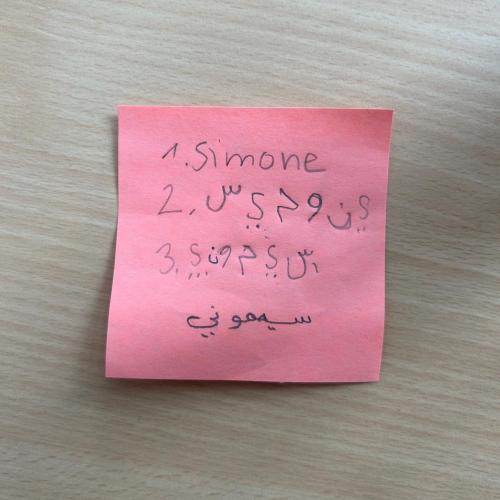 1. Simone
2. س ي م و ن ي
3. ي ن و م ي س
سيموني